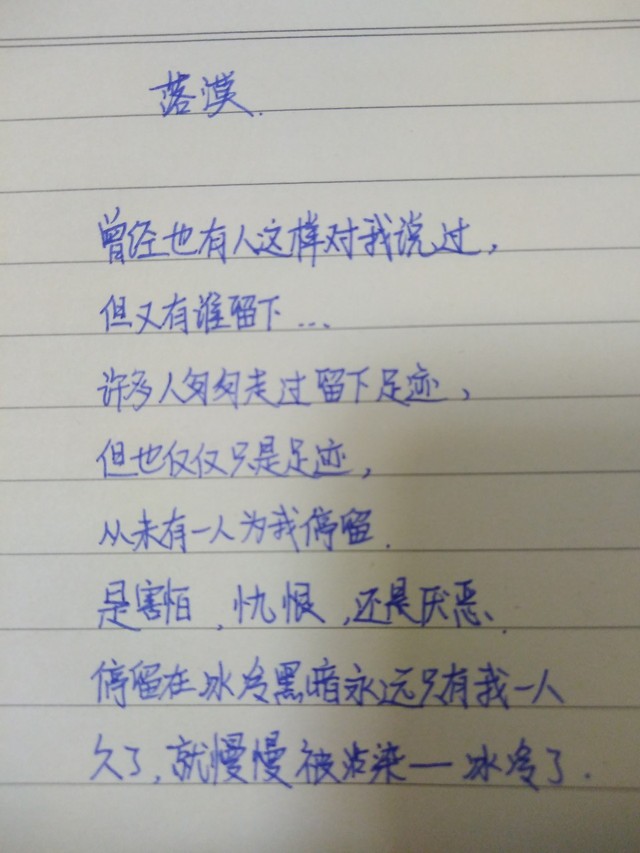 落漠.
曾经也有人这样对我说过,
但又有谁留下...
许多人匆匆走过留下足迹,
但也仅仅只是足迹,
从未有一人为我停留.
是害怕,忧恨,还是厌恶.
停留在冰冷黑暗永远只有我一人
久了,就慢慢被沾染一冰冷了.